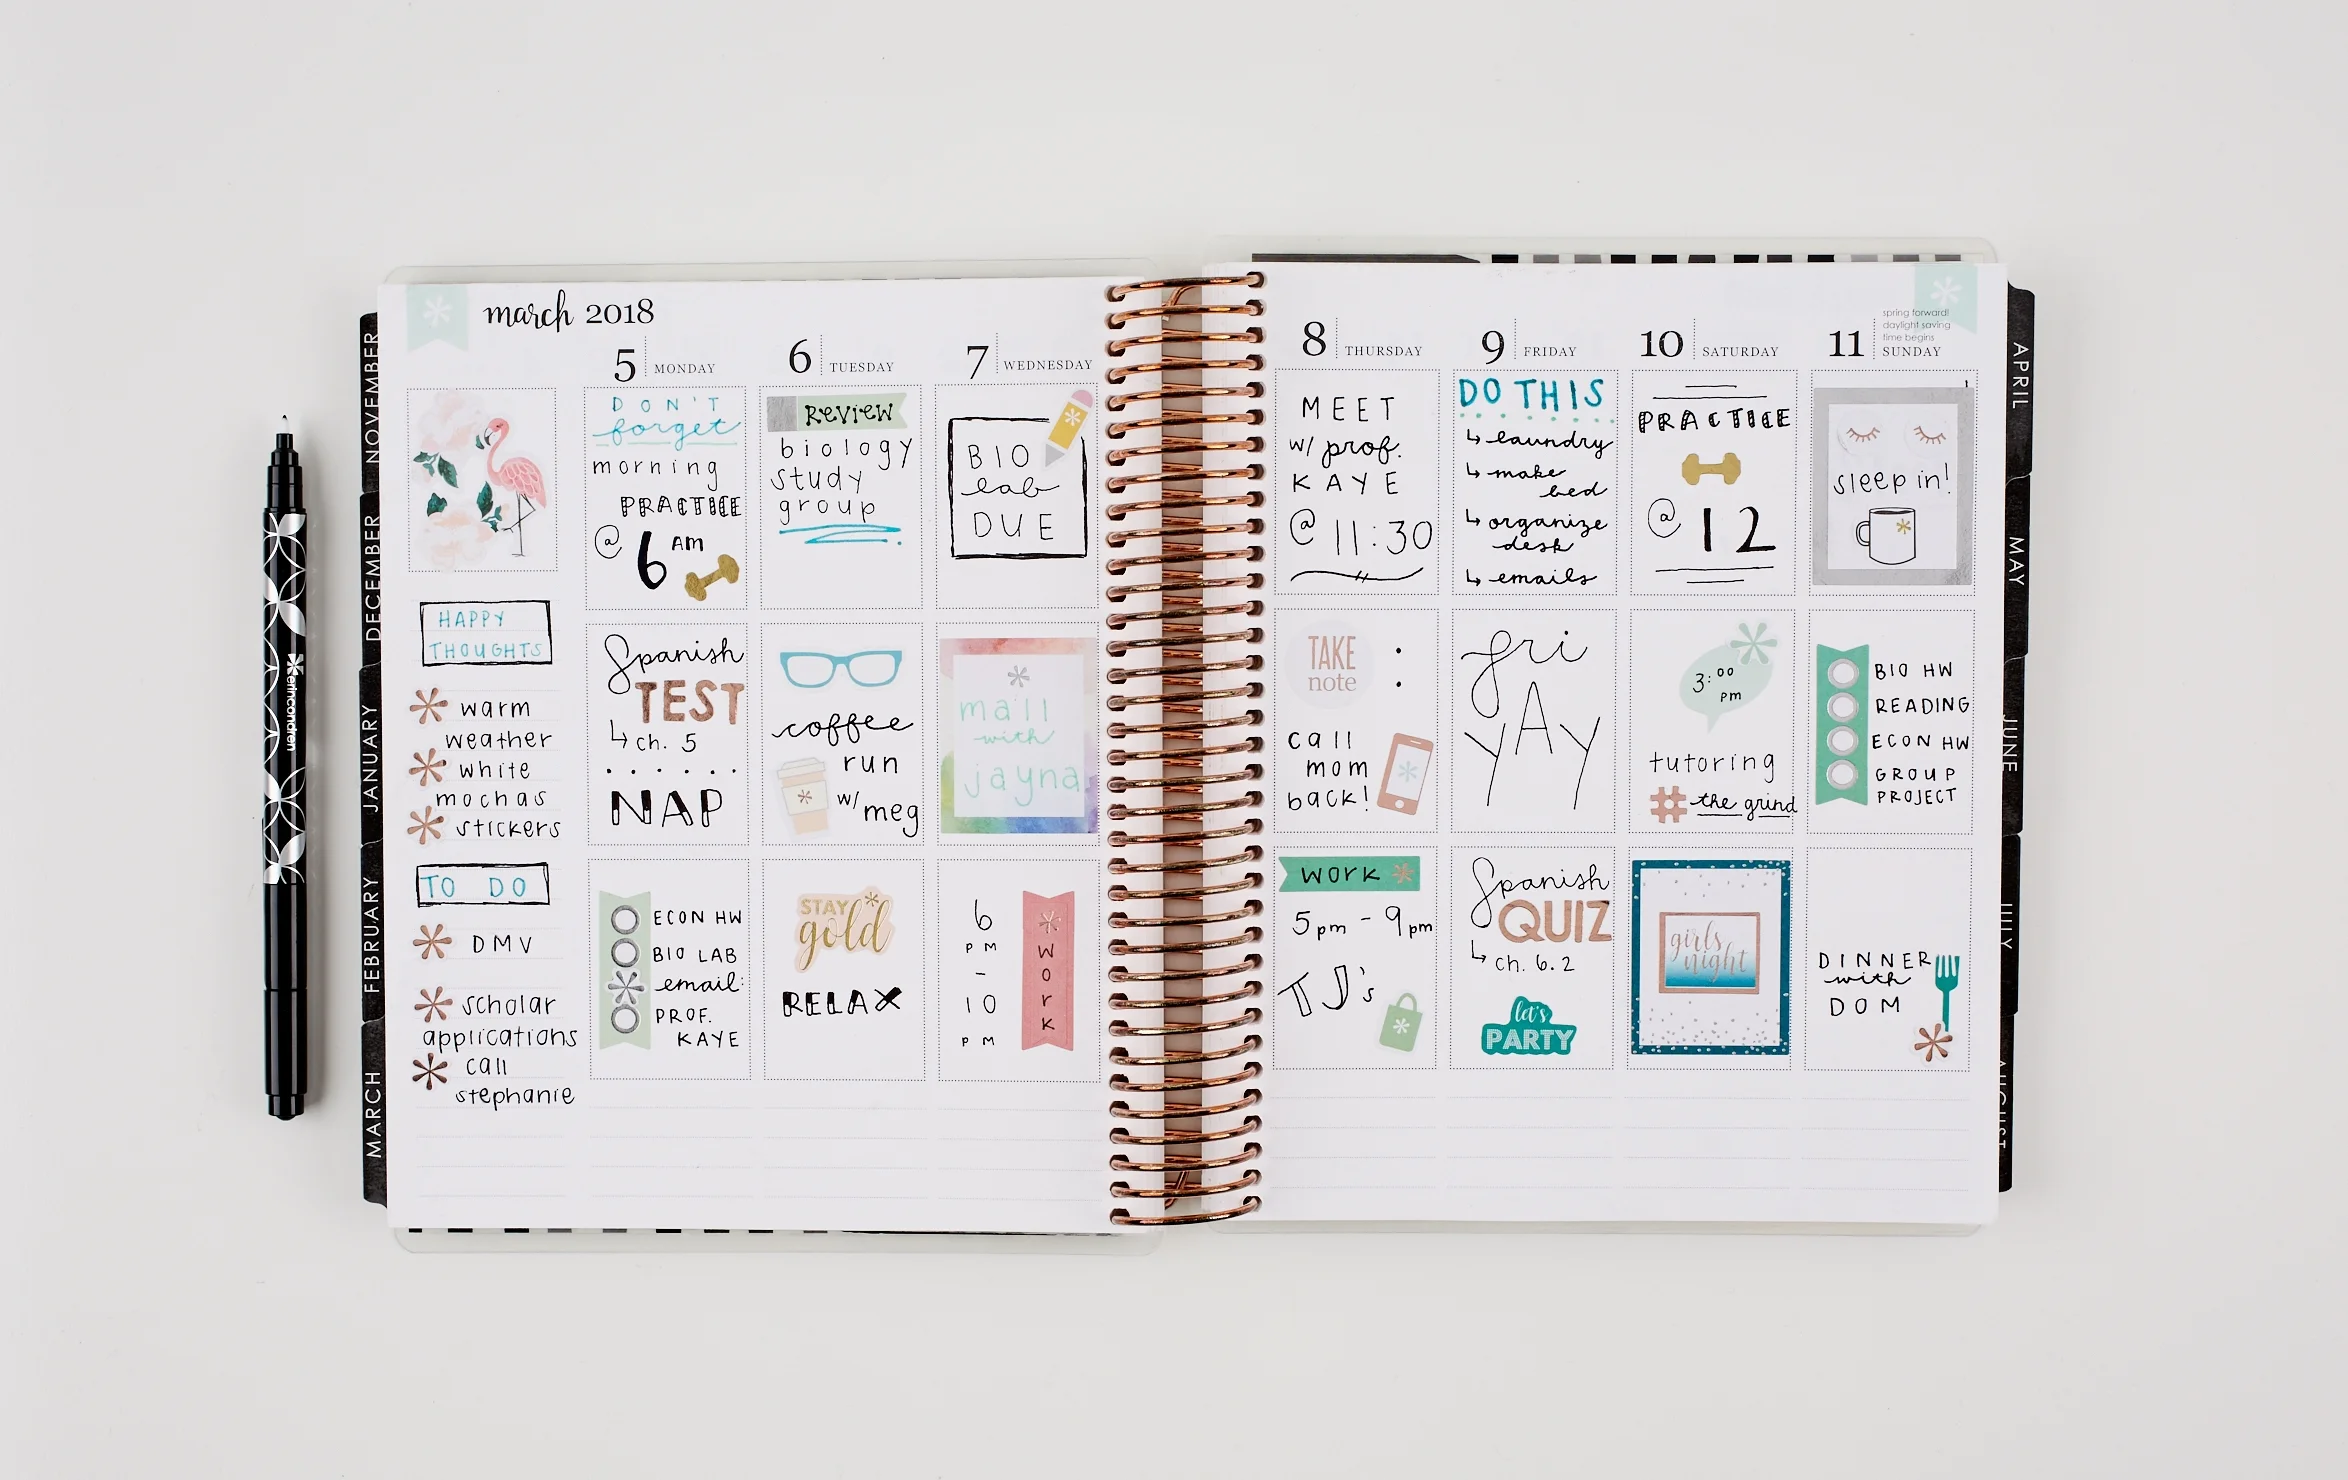 march 2018
5 MONDAY
6 TUESDAY
7 WEDNESDAY
HAPPY
THOUGHTS
warm
weather
white
mochas
stickers
TO DO
DMV
scholar
applications
call
stephanie
DON'T
forget
morning
PRACTICE
@ 6 AM
Spanish
TEST
ch. 5
NAP
ECON HW
BIO LAB
email:
PROF.
KAYE
REVIEW
biology
study
group
coffee
run
w/ meg
STAY
gold
RELAX
BIO
lab
DUE
mall
with
jayna
6
PM
-
10
PM
WORK
8 THURSDAY
9 FRIDAY
10 SATURDAY
spring forward!
daylight saving
time begins
11 SUNDAY
MEET
w/ prof.
KAYE
@ 11:30
TAKE
note
:
call
mom
back!
WORK
5pm - 9pm
TJ's
DO THIS
laundry
make
bed
organize
desk
emails
fri
YAY
Spanish
QUIZ
ch. 6.2
let's
PARTY
PRACTICE
@ 12
3:00
pm
tutoring
# the grind
girls
night
sleep in!
BIO HW
READING
ECON HW
GROUP
PROJECT
DINNER
with
DOM
NOVEMBER
DECEMBER
JANUARY
FEBRUARY
MARCH
APRIL
MAY
JUNE
JULY
AUGUST
erincondren